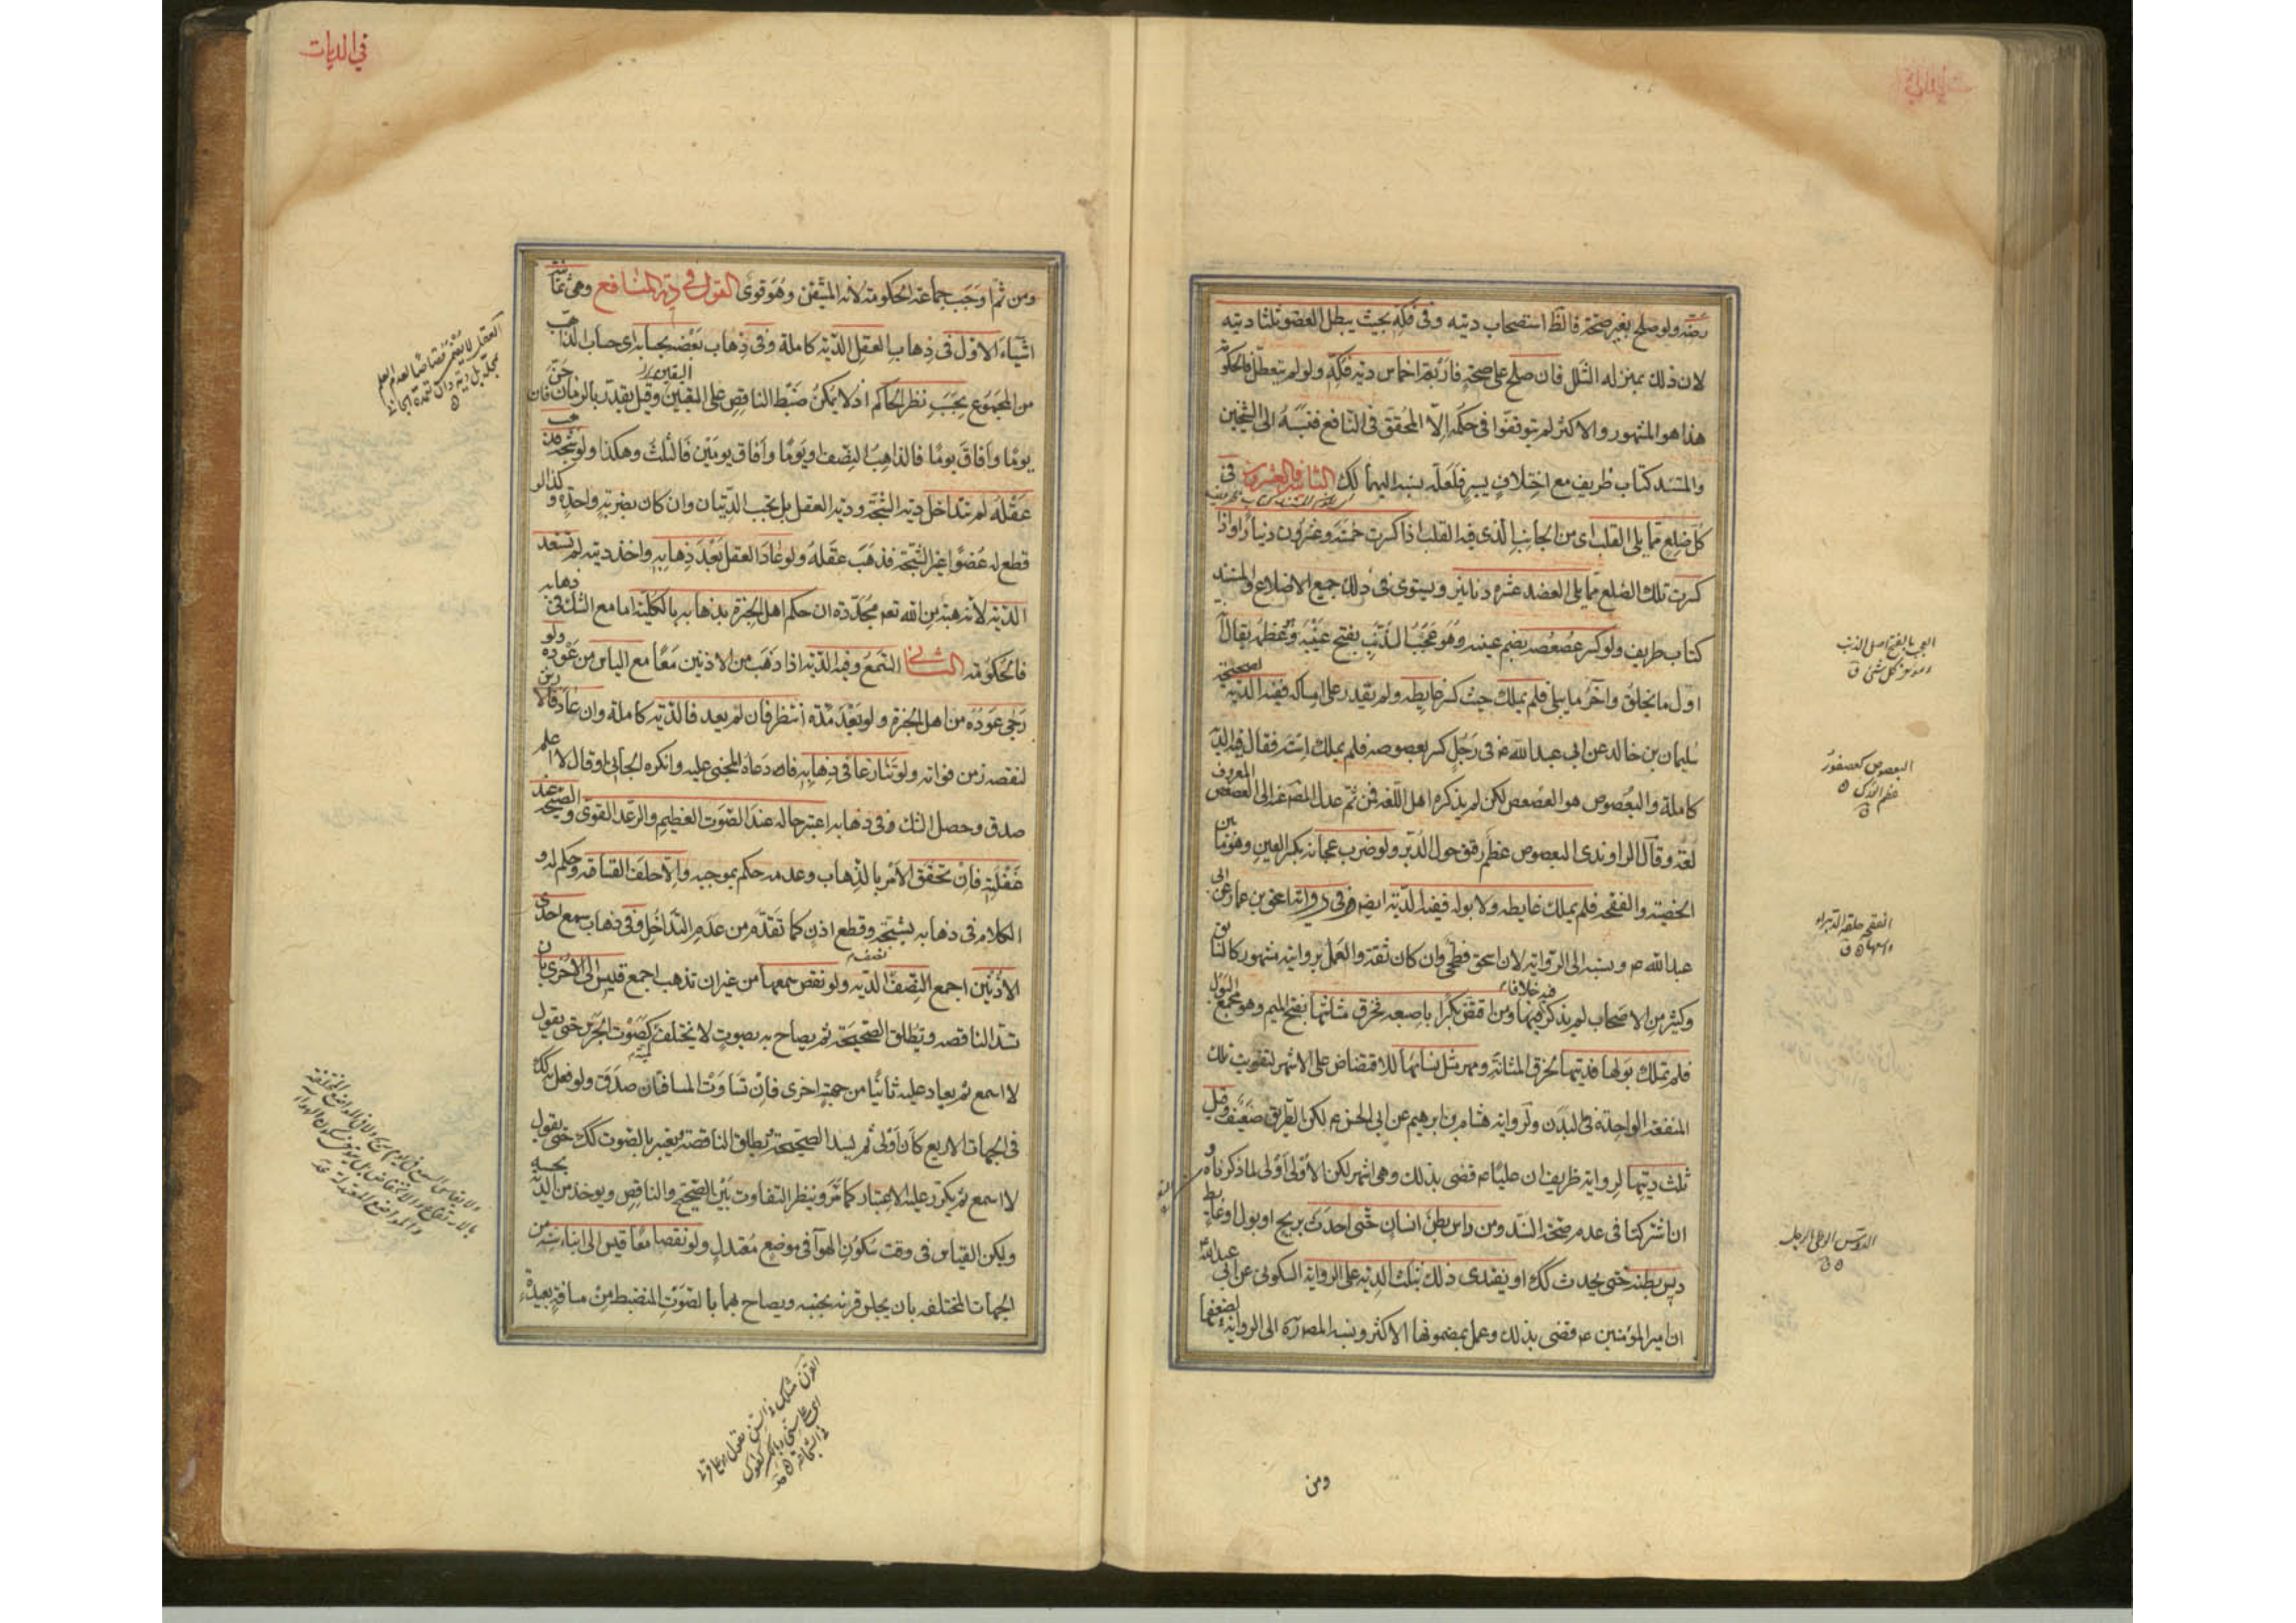 رضّه ولو صلح بغير صحّة فالظ استصحاب ديته وفى فكّه بحيث يبطل العضو ثلثا ديته
لان ذلك بمنزله الشلل فان صلح على صحته فاربعة اخماس دية فكّه ولو لم يتعطّل فالحكومة
هذا هو المشهور والاكثر لم يتوقفوا فى حكمه الّا المحقق فى النافع فنسبه الى الشيخين
والمستند كتاب ظريف مع اختلاف يسير فلعلّه نسبه اليهما لك الثانية والعشرون فى
كل ضلع مما يلى القلب اى من الجانب الّذى فيه القلب اذا كسرت خمسة وعشرون دينارا واذا
كسرت تلك الضلع مما يلى العضد عشرة دنانير ويستوى فى ذلك جميع الاضلاع والمستند
كتاب ظريف ولو كسر عصعصه بضم عينيه وهو عجب الذنب بفتح عينه وعظمه يقال
اول ما يخلق وآخر ما يبلى فلم يملك حيث كسر غايطه ولم يقدر على امساكه ففيه الدية لصحيحة
سليمان بن خالد عن ابى عبد الله ع فى رجل كسر بعصوصه فلم يملك استه فقال فيه الدية
كاملة والبعصوص هو العصعص لكن لم يذكره اهل اللّغة فمن ثم عدل المصنف عنه الى العصعص المعروف
لغة وقال الراوندى البعصوص عظم رقيق حول الدبر ولو ضرب عجانه بكسر العين وهو ما بين
الخصية والفقحة فلم يملك غايطه ولا بوله ففيه الدّية ايضا فى رواية اسحق بن عمار عن ابى
عبد الله ع ونسبه الى الرواية لان اسحق فطحى وان كان ثقة والعمل بروايته مشهور كالسابق
وكثير من الاصحاب لم يذكر فيها خلافا ومن افتض بكرا باصبعه فخرق مثانتها بفتح الميم وهو مجمع البول
فلم تملك بولها فديتها لخرق المثانة ومهر مثل نسائها للاقتضاض على الاشهر لتفويت تلك
المنفعة الواحدة فى البدن ولرواية هشام بن ابرهيم عن ابى الحسن ع لكن الطريق ضعيف وقيل
ثلث ديتها لرواية ظريف ان عليا ع قضى بذلك وهى اشهر لكن الاولى اولى لما ذكرناه و
ان اشتركتا فى عدم صحة السند ومن داس بطن انسان حتى احدث بريح او بول او غايط
ديس بطنه حتى يحدث كك او يفتدى ذلك بثلث الدية على الرواية السكونى عن ابى عبد الله
ان امير المؤمنين ع قضى بذلك وعمل بمضمونها الاكثر ونسبه المصنف الى الرواية لضعفها
العجب بالفتح اصل الذنب
ومؤخر كل شئ ق
البعصوص كعصفور
عظم الورك
الفقحة حلقة الدبر
الدوس الوطى بالرجل
ومن
فى الديات
ومن ثم اوجب جماعة الحكومة لانه المتيقن وهو قوى القول فى دية المنافع وهى ثمانية
اشياء الاول فى ذهاب العقل الدّية كاملة وفى ذهاب بعضه بحسابه اى حساب الذاهب
من المجموع بحسب نظر الحاكم اذ لا يمكن ضبط الناقص على اليقين وقيل يقدر بالزمان فان جن
يوما وافاق يوما فالذاهب النصف ويوما وافاق يومين فالثلث وهكذا ولو شجه فذهب
عقله لم تتداخل دية الشجّة ودية العقل بل تجب الدّيتان وان كان بضربة واحدة وكذا لو
قطع له عضوا غير الشجّة فذهب عقله ولو عاد العقل بعد ذهابه واخذ ديته لم تستعد
الدّية لانه هبة من الله تعم مجدّدة ان حكم اهل الخبرة بذهابه بالكلية اما مع الشك فى ذهابه
فالحكومة الثانى السمع وفيه الدّية اذا ذهب من الاذنين معا مع الياس من عوده ولو
رجى عوده من اهل الخبرة ولو بعد مدّة انتظر فان لم يعد فالدّية كاملة وان عاد فالارش
لنقصه زمن فواته ولو تنازعا فى ذهابه فادعاه المجنى عليه وانكره الجانى او قال لا اعلم
صدق وحصل الشك فى ذهابه اعتبر حاله عند الصوت العظيم والرعد القوى والصيحة عند
غفلته فان تحقق الامر بالذهاب وعدمه حكم بموجبه والّا حلف القسامة وحكم له و
الكلام فى ذهابه بشجّة وقطع اذن كما تقدّم من عدم التداخل وفى ذهاب سمع احدى
الاذنين اجمع النصف الدّية ولو نقص سمعها من غير ان تذهب اجمع قيس الى الاخرى بان
تسدّ الناقصه وتطلق الصحيحة ثم يصاح به بصوت لا يختلف كصوت الجرس حتى يقول
لا اسمع ثم يعاد عليه ثانيا من جهة اخرى فان تساوت المسافتان صدق ولو فعل به كك
فى الجهات الاربع كان اولى ثم يسد الصحيحة ويطلق الناقصة ويعتبر بالصوت كك حتى يقول
لا اسمع ثم يكرّر عليه الاعتبار كما مرّ وينظر التفاوت بين الصحيحة والناقص ويوخذ من الدية بحسبه
وليكن القياس فى وقت سكون الهوآء فى موضع معتدل ولو نقصا معا قيس الى ابناء سنه من
الجهات المختلفه بان يجلس قرينه بجنبه ويصاح بهما بالصوت المنضبط من مسافة بعيدة